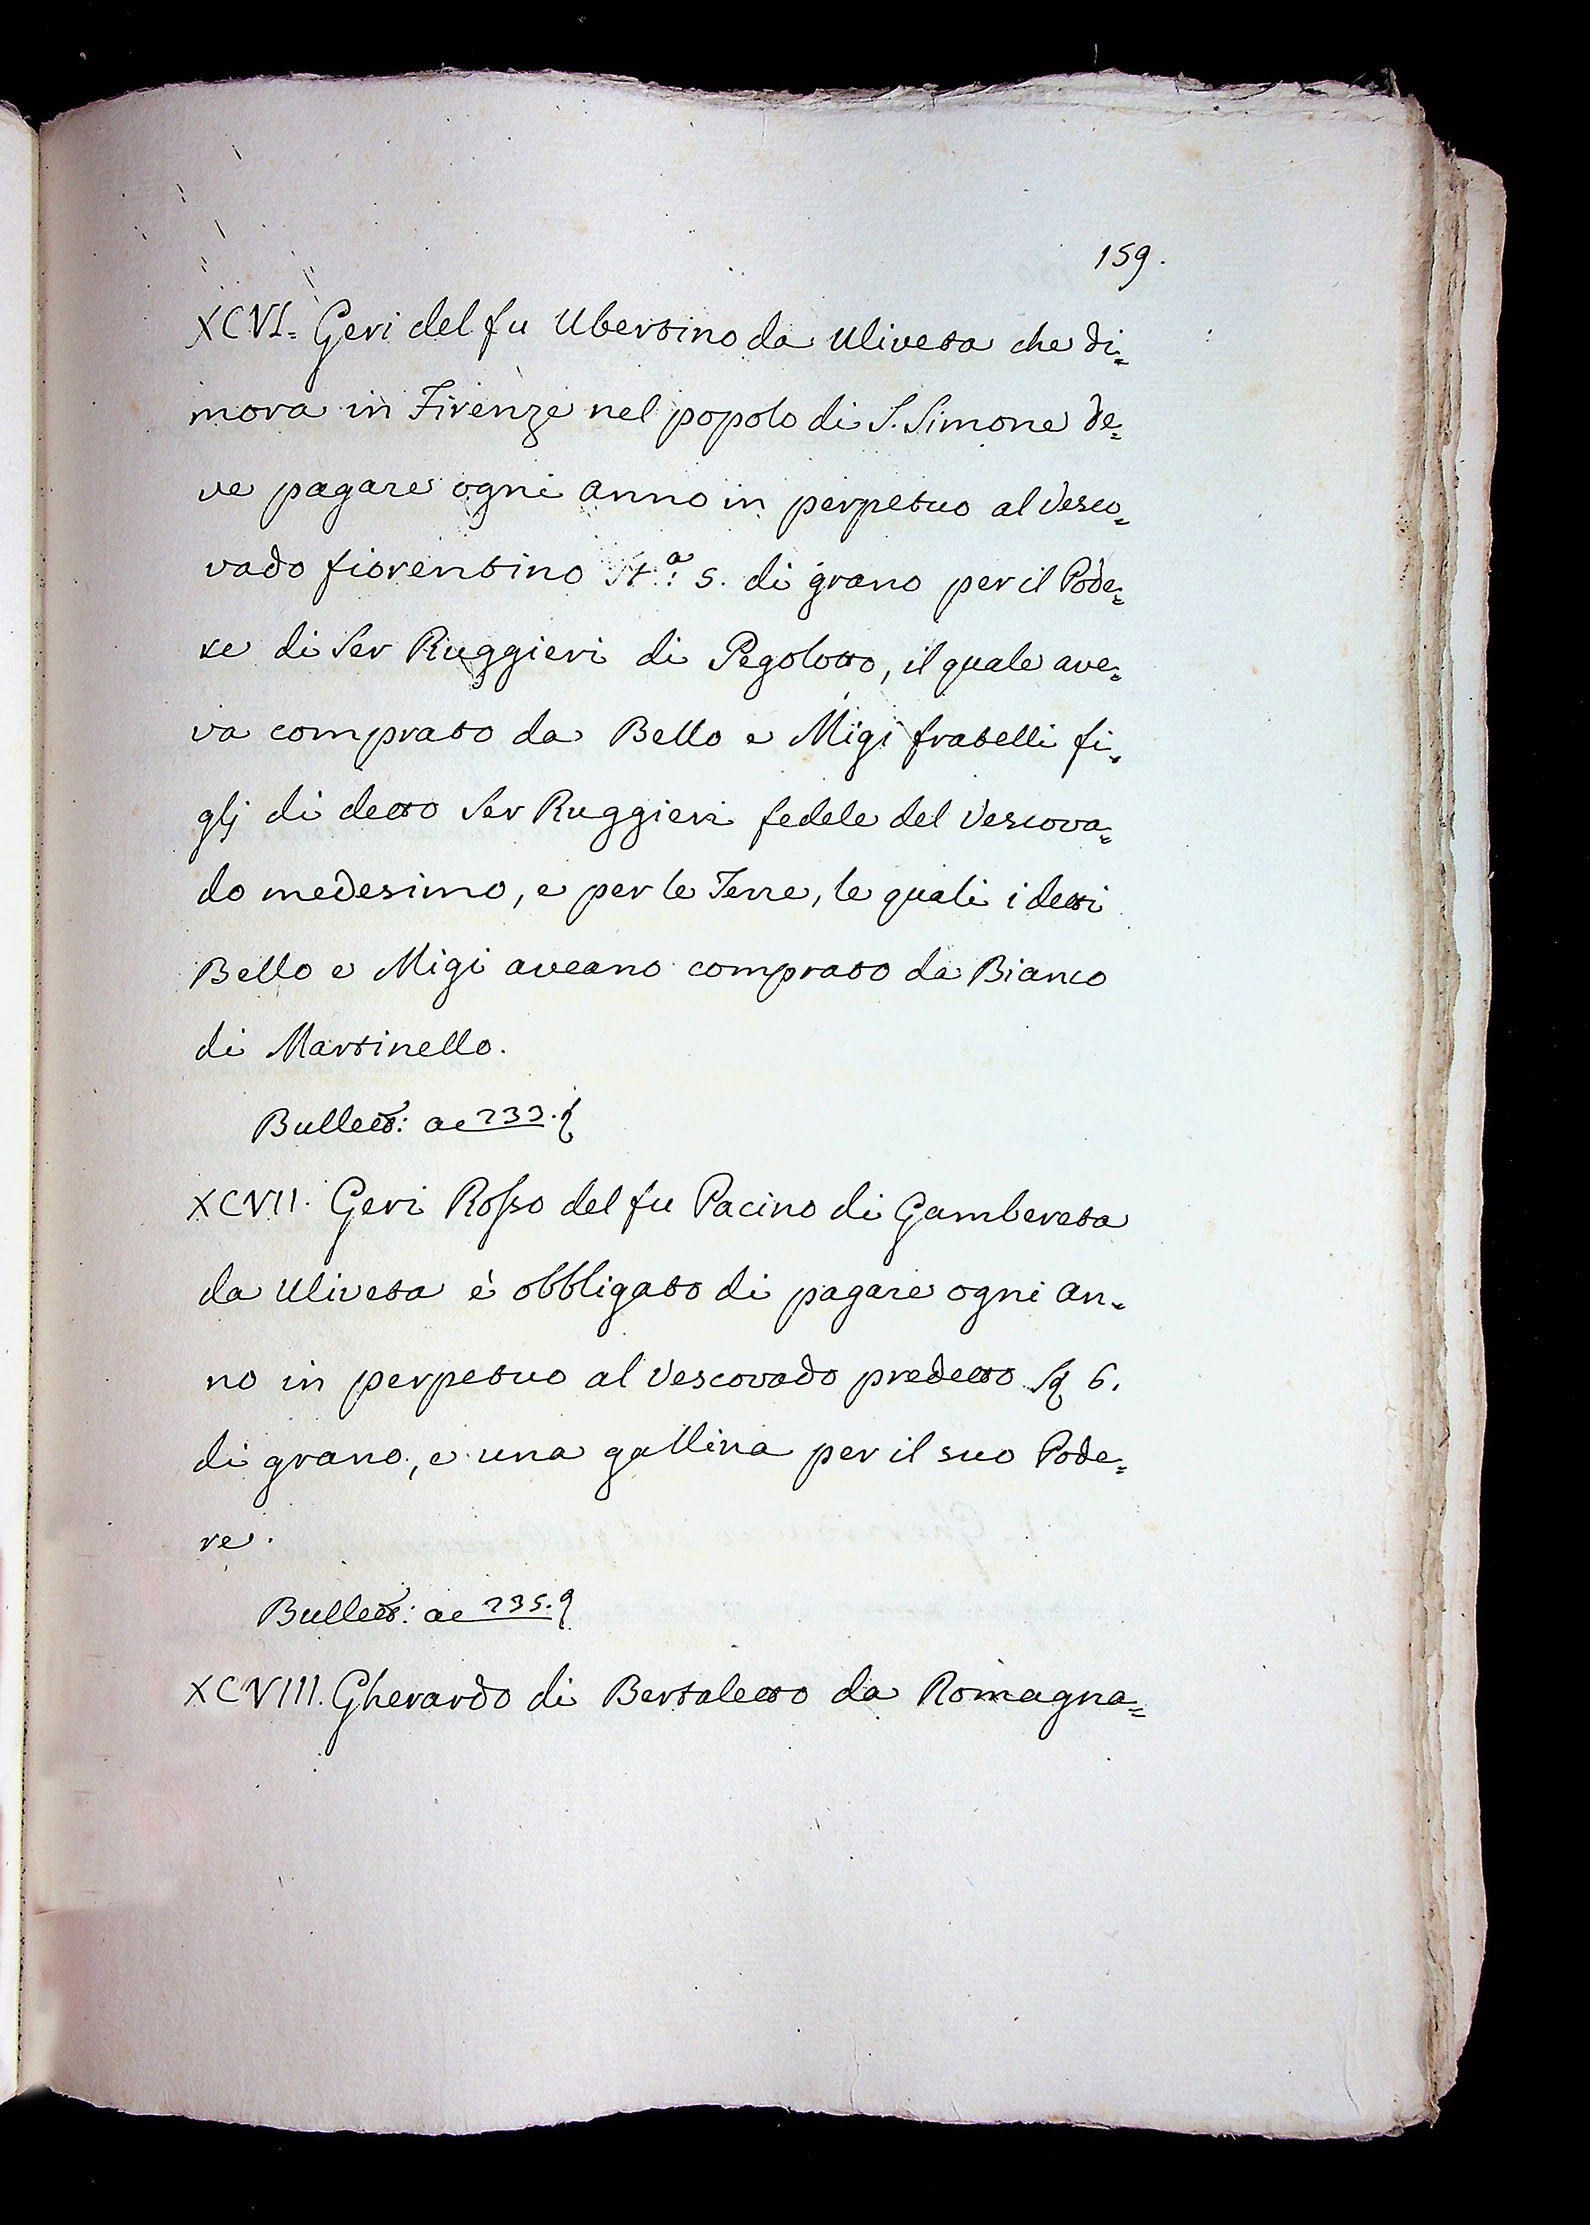 159.
XCVI. Geri del fu Ubertino da Uliveta che di=
mora in Firenze nel popolo di S. Simone de=
ve pagare ogni anno in perpetuo al Vesco=
vado fiorentino Sta: 5. di grano per il Pode=
re di Ser Ruggieri di Pegolotto, il quale ave=
va comprato da Bello e Migi fratelli fi=
glj di detto Ser Ruggieri fedele del Vescova=
do medesimo, e per le Terre, le quali i detti
Bello e Migi aveano comprato da Bianco
di Martinello.
Bullett: ac 233.
XCVII. Geri Rosso del fu Pacino di Gambereta
da Uliveta è obbligato di pagare ogni an=
no in perpetuo al Vescovado predetto 6.
di grano, e una gallina per il suo Pode=
re.
Bullett: ac 235.
XCVIII. Gherardo di Bertaletto da Romagna=